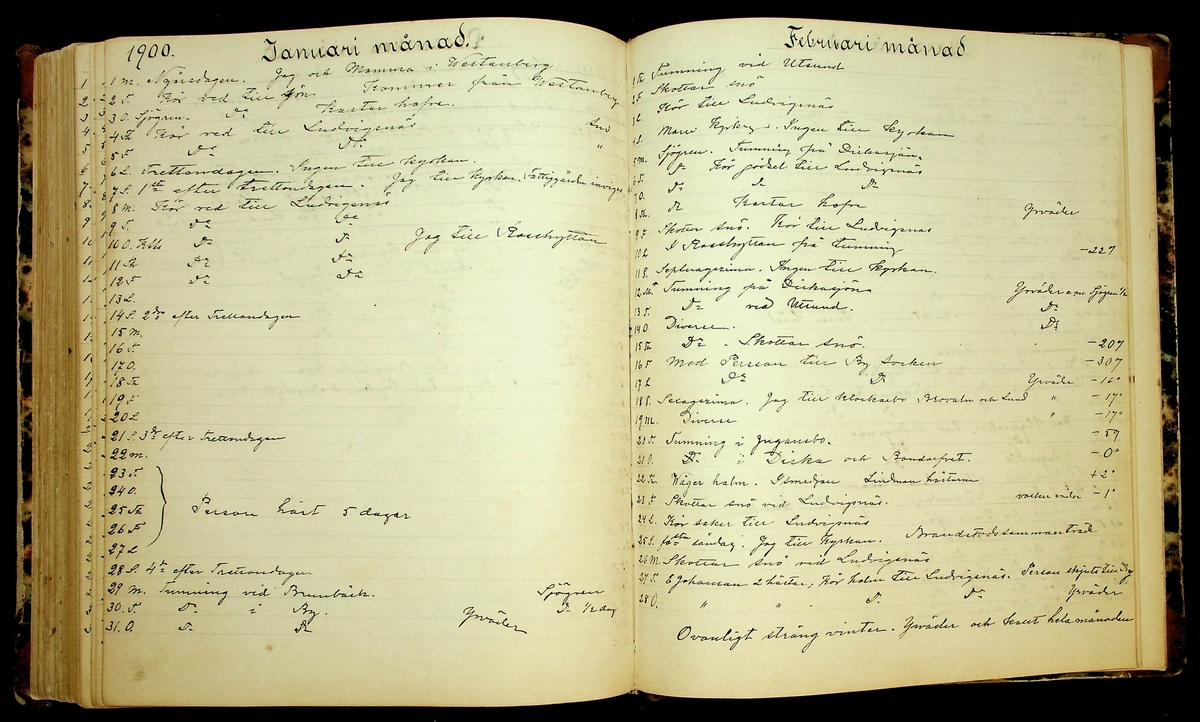 1900. Januari månad.
1 M. Nyårsdagen. Jag och Mamma i Westanberg
2 T. Kör ved till Kommer från Westanberg
3 O. Sjögren. Do Kastar hafre.
4 Th Kör ved till Ludvigsnäs Snö
5 F Do Do "
6 L. Trettondagen. Ingen till kyrkan.
7 S. 1sta efter trettondagen. Jag till kyrkan. Fattiggården inviges
8 M. Kör ved till Ludvigsnäs
9 T. Do Do
10 O. Do Do Jag till Rosshyttan
11 Th Do Do
12 F Do Do
13 L.
14 S. 2dra efter Trettondagen
15 M.
16 T.
17 O.
18 Th
19 F
20 L
21 S. 3dje efter Trettondagen
22 M.
23 T.
24 O.
25 Th Person härt 5 dagar
26 F
27 L
28 S. 4de efter Trettondagen
29 M. Tumning vid Brunnbäck. Sjögren
30. T. Do i By. Do 1/2 dag
31. O. Do Do Yrväder
Februari månad
1 Th Tumning vid Utsund
2 F. Skottar snö
3 L. Kör till Ludvigsnäs
4 S. Ingen till kyrkan
5 M. Sjögren. Tumning på Dickasjön.
6 T. Do Kör gödsel till Ludvigsnäs
7 O. Do Do Do
8 Th. Do Kastar hafre Yrväder
9 F Skottar snö. Kör till Ludvigsnäs
10 L I Rosshyttan på tumning -22°
11 S. Septuagesima. Ingen till kyrkan.
12 M Tumning på Dickasjön Yrväder e.m. Sjögren 1/2
13 T. Do vid Utsund. Do
14 O. Diverse. Do
15 Th Do. Skottar snö. -20°
16 F Med Person till By socken -30°
17 L Do Do Yrväder -16°
18 S. Sexagesima. Jag till Klockarbo Brovaln och Lund " -17°
19 M. Diverse " -17°
20 T. Tumning i -5°
21 O. Do i Dicka och -0°
22 Th. Wäger halm. Lindman +2°
23 F. Skottar snö vid Ludvigsnäs. vacker väder -1°
24 L. Kör saker till Ludvigsnäs
25 S. Fastl. söndag. Jag till Kyrkan. Brandstodssammanträde
26 M. Skottar snö vid Ludvigsnäs
27 T. E Johansson 2 hästar, Kör halm till Ludvigsnäs. Person skjuts till By
28 O. " " Do Do Yrväder
Ovanligt sträng vinter. Yrväder och kallt hela månaden